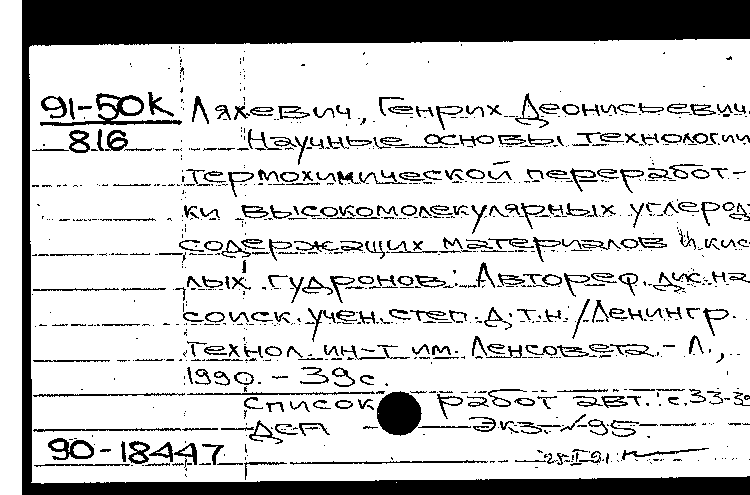 91-50К Ляхевич, Генрих Деонисьевич
816 Научные основы технологии
термохимической переработ-
ки высокомолекулярных углерод
содержащих материалов и кис
лых гудронов: Автореф. дис. на
соиск. учен. степ. д.т.н. / Ленингр.
технол. ин-т им. Ленсовета. - Л.,
1990. - 39с.
Список работ авт.: с. 33-39
ДСП Экз. №95.
90-18447